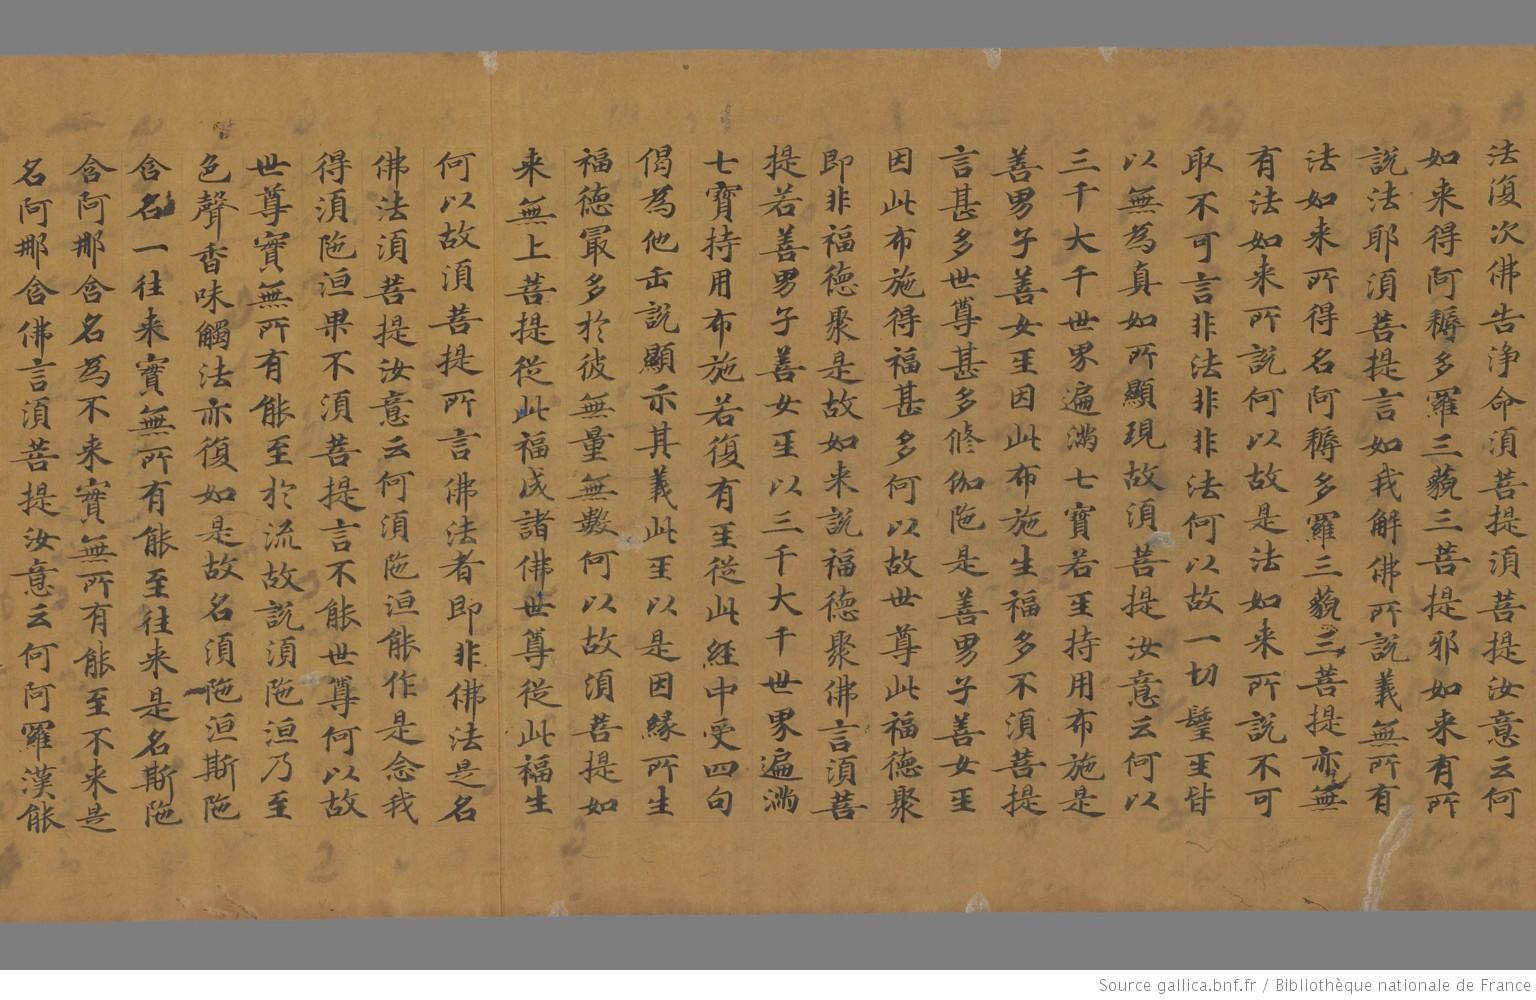 法復次佛告淨命須菩提須菩提汝意云何
如来得阿耨多羅三藐三菩提邪如来有所
說法耶須菩提言如我解佛所說義無所有
法如来所得名阿耨多羅三藐三菩提亦無
有法如来所說何以故是法如来所說不可
取不可言非法非非法何以故一切聖𤯔皆
以無為真如所顯現故須菩提汝意云何以
三千大千世界遍滿七寶若𤯔持用布施是
善男子善女𤯔因此布施生福多不須菩提
言甚多世尊甚多修伽陁是善男子善女𤯔
因此布施得福甚多何以故世尊此福德聚
即非福德聚是故如来說福德聚佛言須菩
提若善男子善女𤯔以三千大千世界遍滿
七寶持用布施若復有𤯔從此經中受四句
偈為他𠙺說顯示其義此𤯔以是因緣所生
福德冣多於彼無量無數何以故須菩提如
来無上菩提從此福成諸佛世尊從此福生
何以故須菩提所言佛法者即非佛法是名
佛法須菩提汝意云何須陁洹能作是念我
得須陁洹果不須菩提言不能世尊何以故
世尊實無所有能至於流故說須陁洹乃至
色聲香味觸法亦復如是故名須陁洹斯陁
含名一往来實無所有能至往来是名斯陁
含阿那含名為不来實無所有能至不来是
名阿那含佛言須菩提汝意云何阿羅漢能